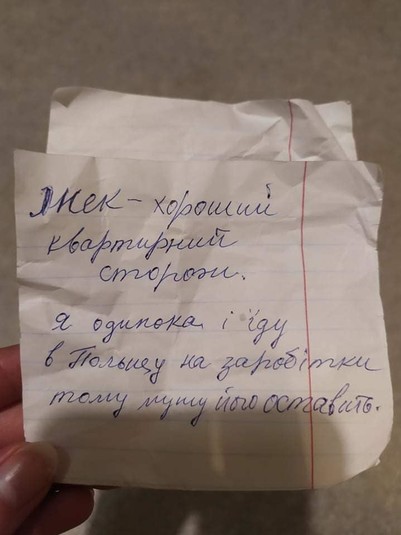 Янек - хороший
квартирний
сторож.
Я одинока і їду
в Польщу на заробітки
тому мушу його оставить.